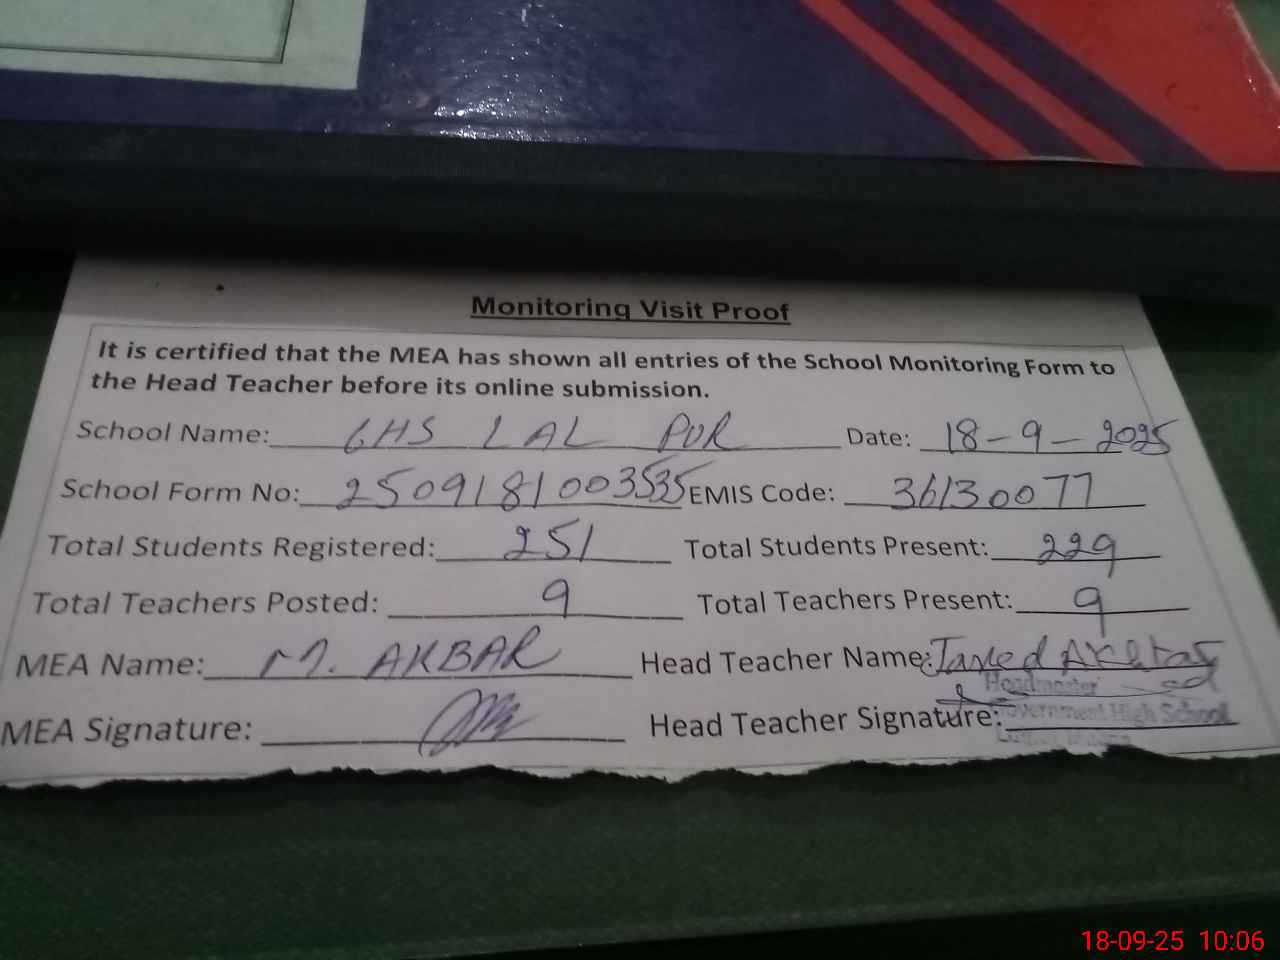 Monitoring Visit Proof
It is certified that the MEA has shown all entries of the School Monitoring Form to
the Head Teacher before its online submission.
School Name: GHS LAL PUR Date: 18-9-2025
School Form No: 2509181003535 EMIS Code: 36130077
Total Students Registered: 251 Total Students Present: 229
Total Teachers Posted: 9 Total Teachers Present: 9
MEA Name: M. AKBAR Head Teacher Name: Javed Akhtar
Headmaster
MEA Signature: Head Teacher Signature: Government High School
18-09-25 10:06